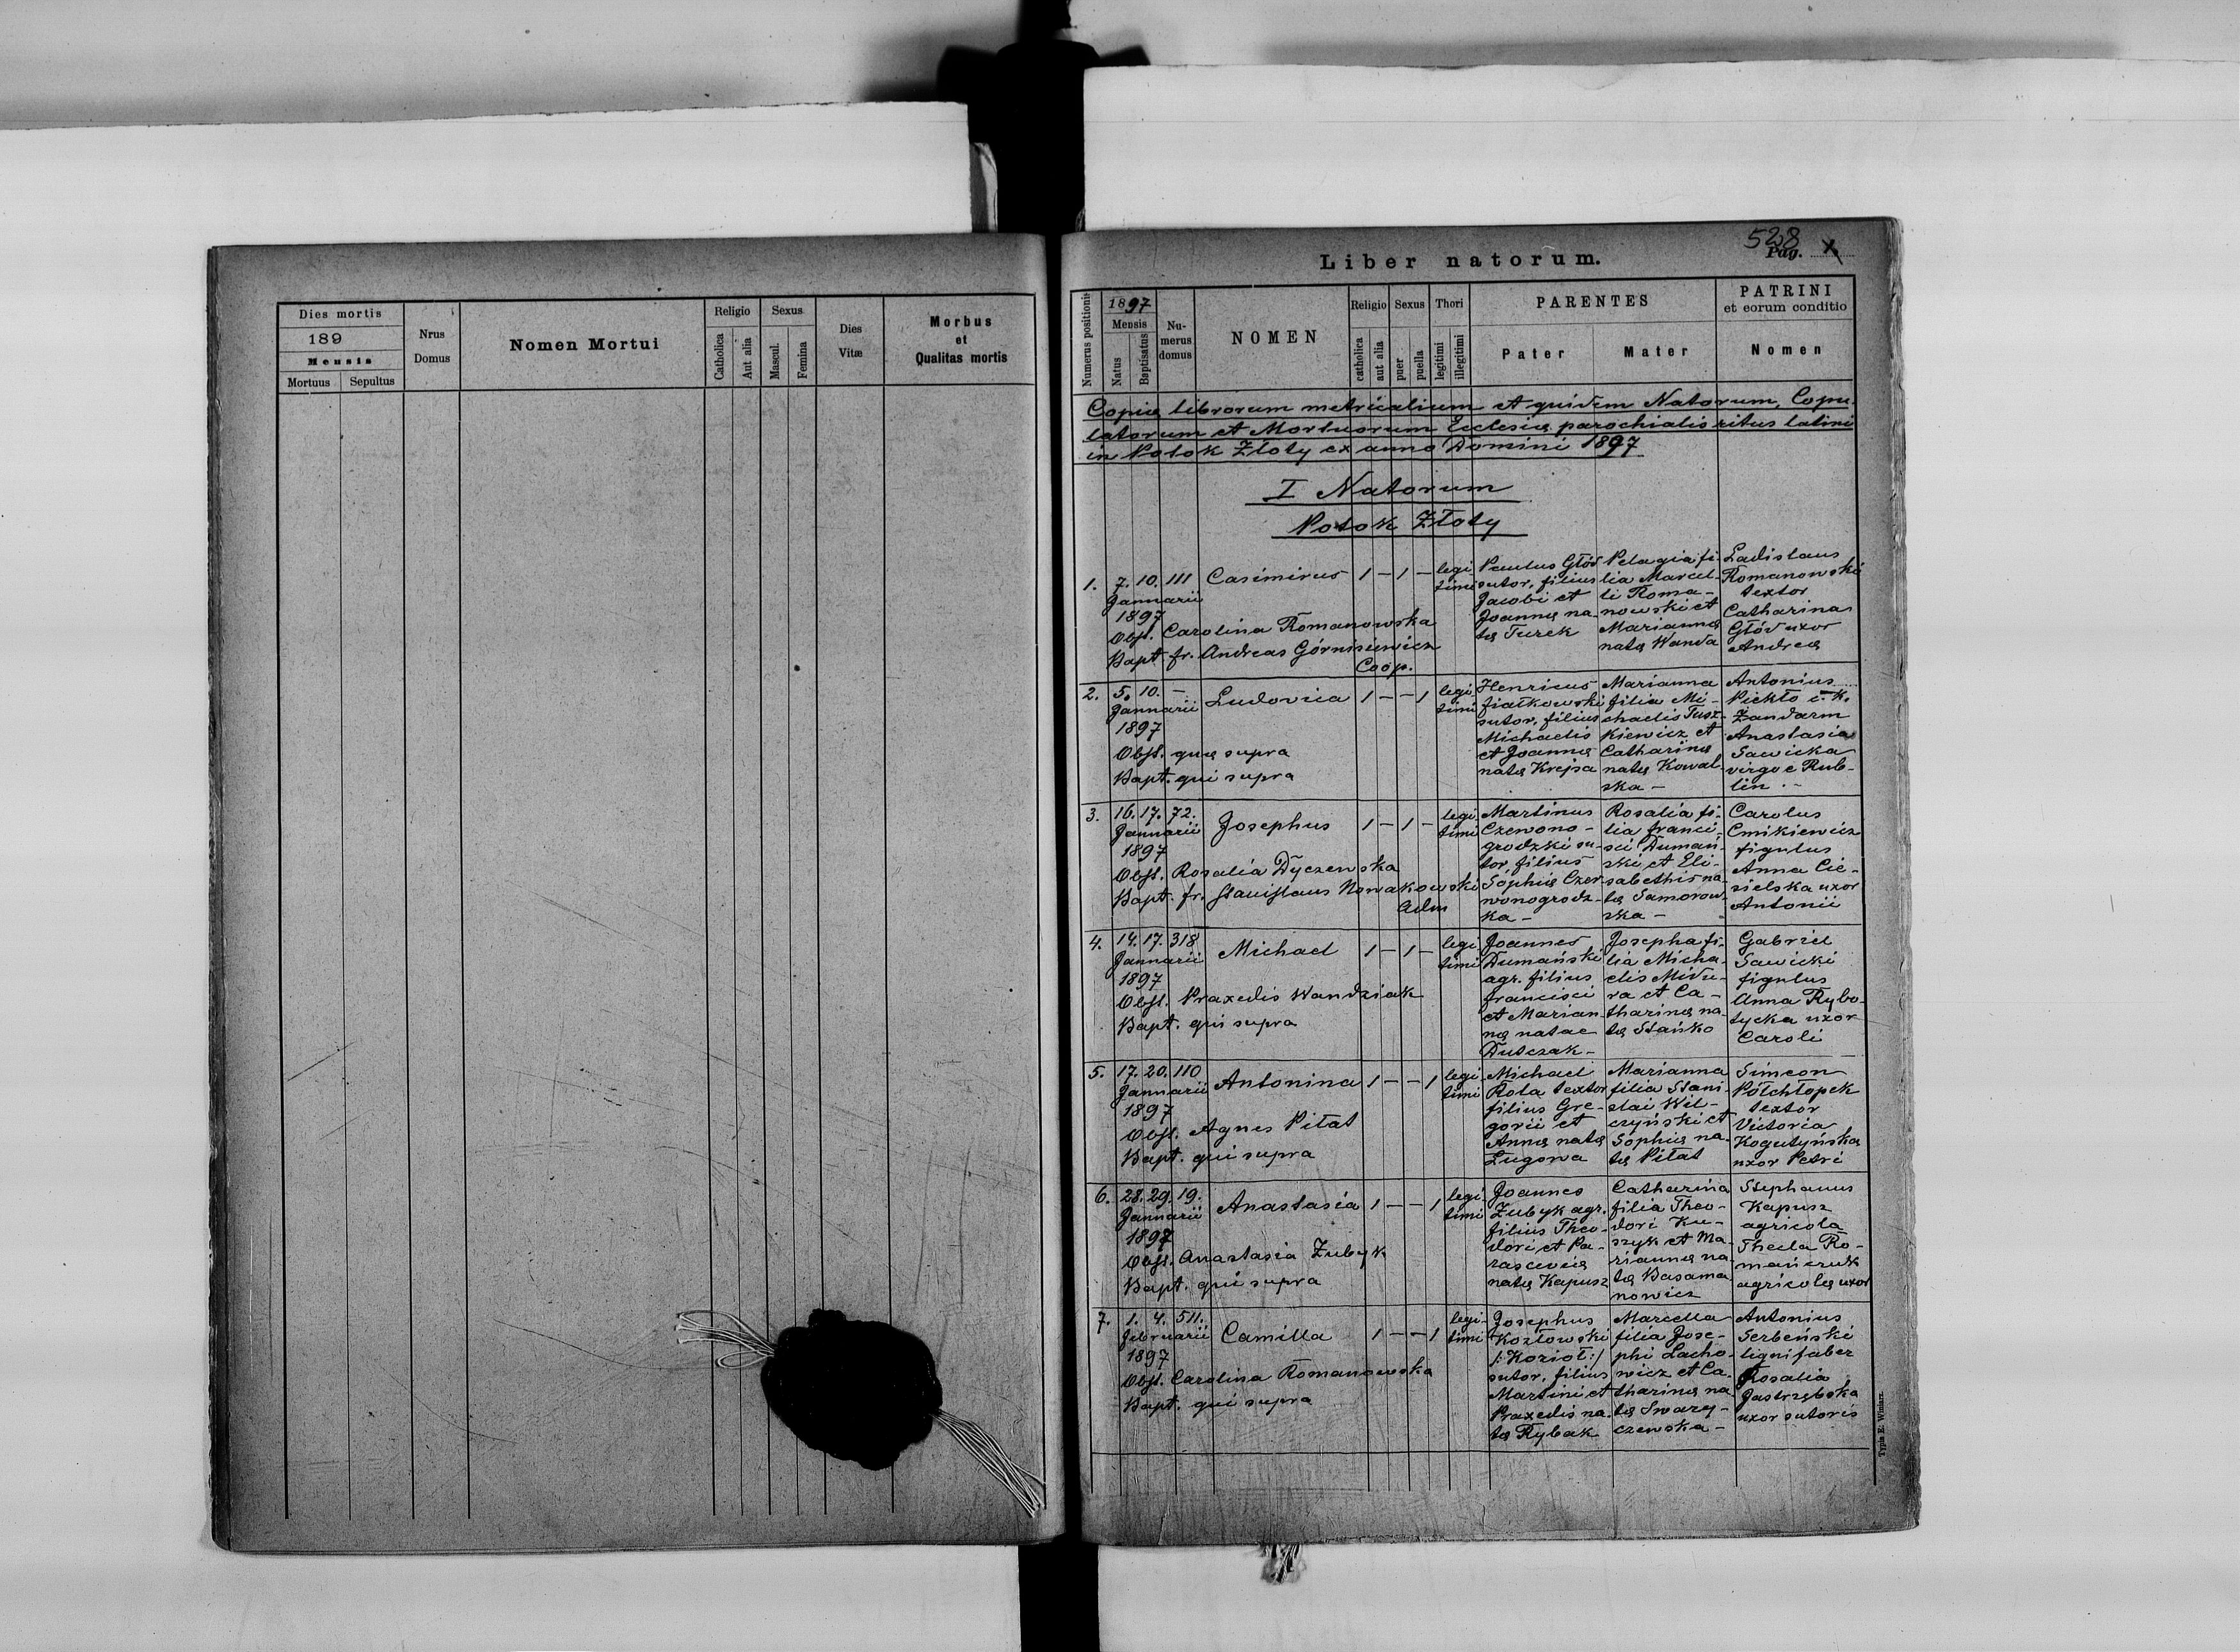 Dies mortis
189
Mensis
Mortuus Sepultus
Nrus
Domus
Nomen Mortui
Religio
Catholica
Aut alia
Sexus
Mascul.
Femina
Dies
Vitæ
Morbus
et
Qualitas mortis
528
Pag. 1
Liber natorum.
Numerus positionis
1897
Mensis
Natus
Baptisatus
Nu-
merus
domus
NOMEN
Religio
catholica
aut alia
Sexus
puer
puella
Thori
legitimi
illegitimi
PARENTES
Pater
Mater
PATRINI
et eorum conditio
Nomen
Copia librorum metricalium et quidem Natorum, Copu-
latorum et Mortuorum Ecclesiæ parochialis ritus latini
in Potok Złoty ex anno Domini 1897
I Natorum
Potok Złoty
1. 7. 10. 111 Casimirus 1 – 1 – legi
timi
Januarii
1897
Obst. Carolina Romanowska
Bapt. fr. Andreas Górnisiewicz
Coop.
Paulus Głód
sutor, filius
Jacobi et
Joannæ na-
tæ Turek
Pelagia fi-
lia Marcel-
li Roma-
nowski et
Mariannæ
natæ Wanda
Ladislaus
Romanowski
textor
Catharina
Głód uxor
Andreæ
2. 5. 10. – Ludovica 1 – – 1 legi
timi
Januarii
1897
Obst. quæ supra
Bapt. qui supra
Henricus
fiałkowski
sutor, filius
Michaelis
et Joannæ
natæ Krejsa
Marianna
filia Mi-
chaelis Tusz-
kiewicz et
Catharinæ
natæ Kowal-
ska –
Antonius
Piekło c. k.
Żandarm
Anastasia
Sawicka
virgo e Rub-
lin. –
3. 16. 17. 72. Josephus 1 – 1 – legi
timi
Januarii
1897
Obst. Rosalia Dyczewska
Bapt. fr. Stanislaus Nowakowski
Adm
Martinus
Czewono-
grodzki su-
tor, filius
Sophiæ Czer-
wonogrodz-
ka –
Rosalia fi-
lia franci-
sci Dumań-
ski et Eli-
sabethis na-
tæ Samorow-
ska –
Carolus
Cmikiewicz
figulus
Anna Cie-
sielska uxor
Antonii
4. 14. 17. 318 Michael 1 – 1 – legi
timi
Januarii
1897
Obst. Praxedis Wandziak
Bapt. qui supra
Joannes
Dumański
agr. filius
francisci
et Marian-
næ natae
Dutczak –
Josepha fi-
lia Micha-
elis Midu-
ra et Ca-
tharinæ na-
tæ Stańko
Gabriel
Sawicki
figulus
Anna Rybo-
tycka uxor
Caroli
5. 17. 20. 110 Antonina 1 – – 1 legi
timi
Januarii
1897
Obst. Agnes Piłat
Bapt. qui supra
Michael
Rola textor
filius Gre-
gorii et
Annæ natæ
Ługowa
Marianna
filia Stani-
slai Wil-
czyński et
Sophiæ na-
tæ Piłat
Simeon
Półchłopek
textor
Victoria
Kogutyńska
uxor Petri
6. 28. 29. 19. Anastasia 1 – – 1 legi
timi
Januarii
1897
Obst. Anastasia Zubyk
Bapt. qui supra
Joannes
Zubyk agr.
filius Theo-
dori et Pa-
rasceviæ
natæ Kapusz
Catharina
filia Theo-
dori Ku-
szyk et Ma-
riannæ na-
tæ Basama
nowicz
Stephanus
Kapusz
agricola
Thecla Ro-
mańczuk
agricolæ uxor
7. 1. 4. 511. Camilla 1 – – 1 legi-
timi
februarii
1897
Obst. Carolina Romanowska
Bapt. qui supra
Josephus
Kozłowski
/: Kozioł :/
sutor, filius
Martini et
Praxedis na-
tæ Rybak
Mariella
filia Jose-
phi Lacho-
wicz et Ca-
tharinæ na-
tæ Swary-
czewska –
Antonius
Serbeński
lignifaber
Rosalia
Jastrzębska
uxor sutoris
Typis E. Winiarz.